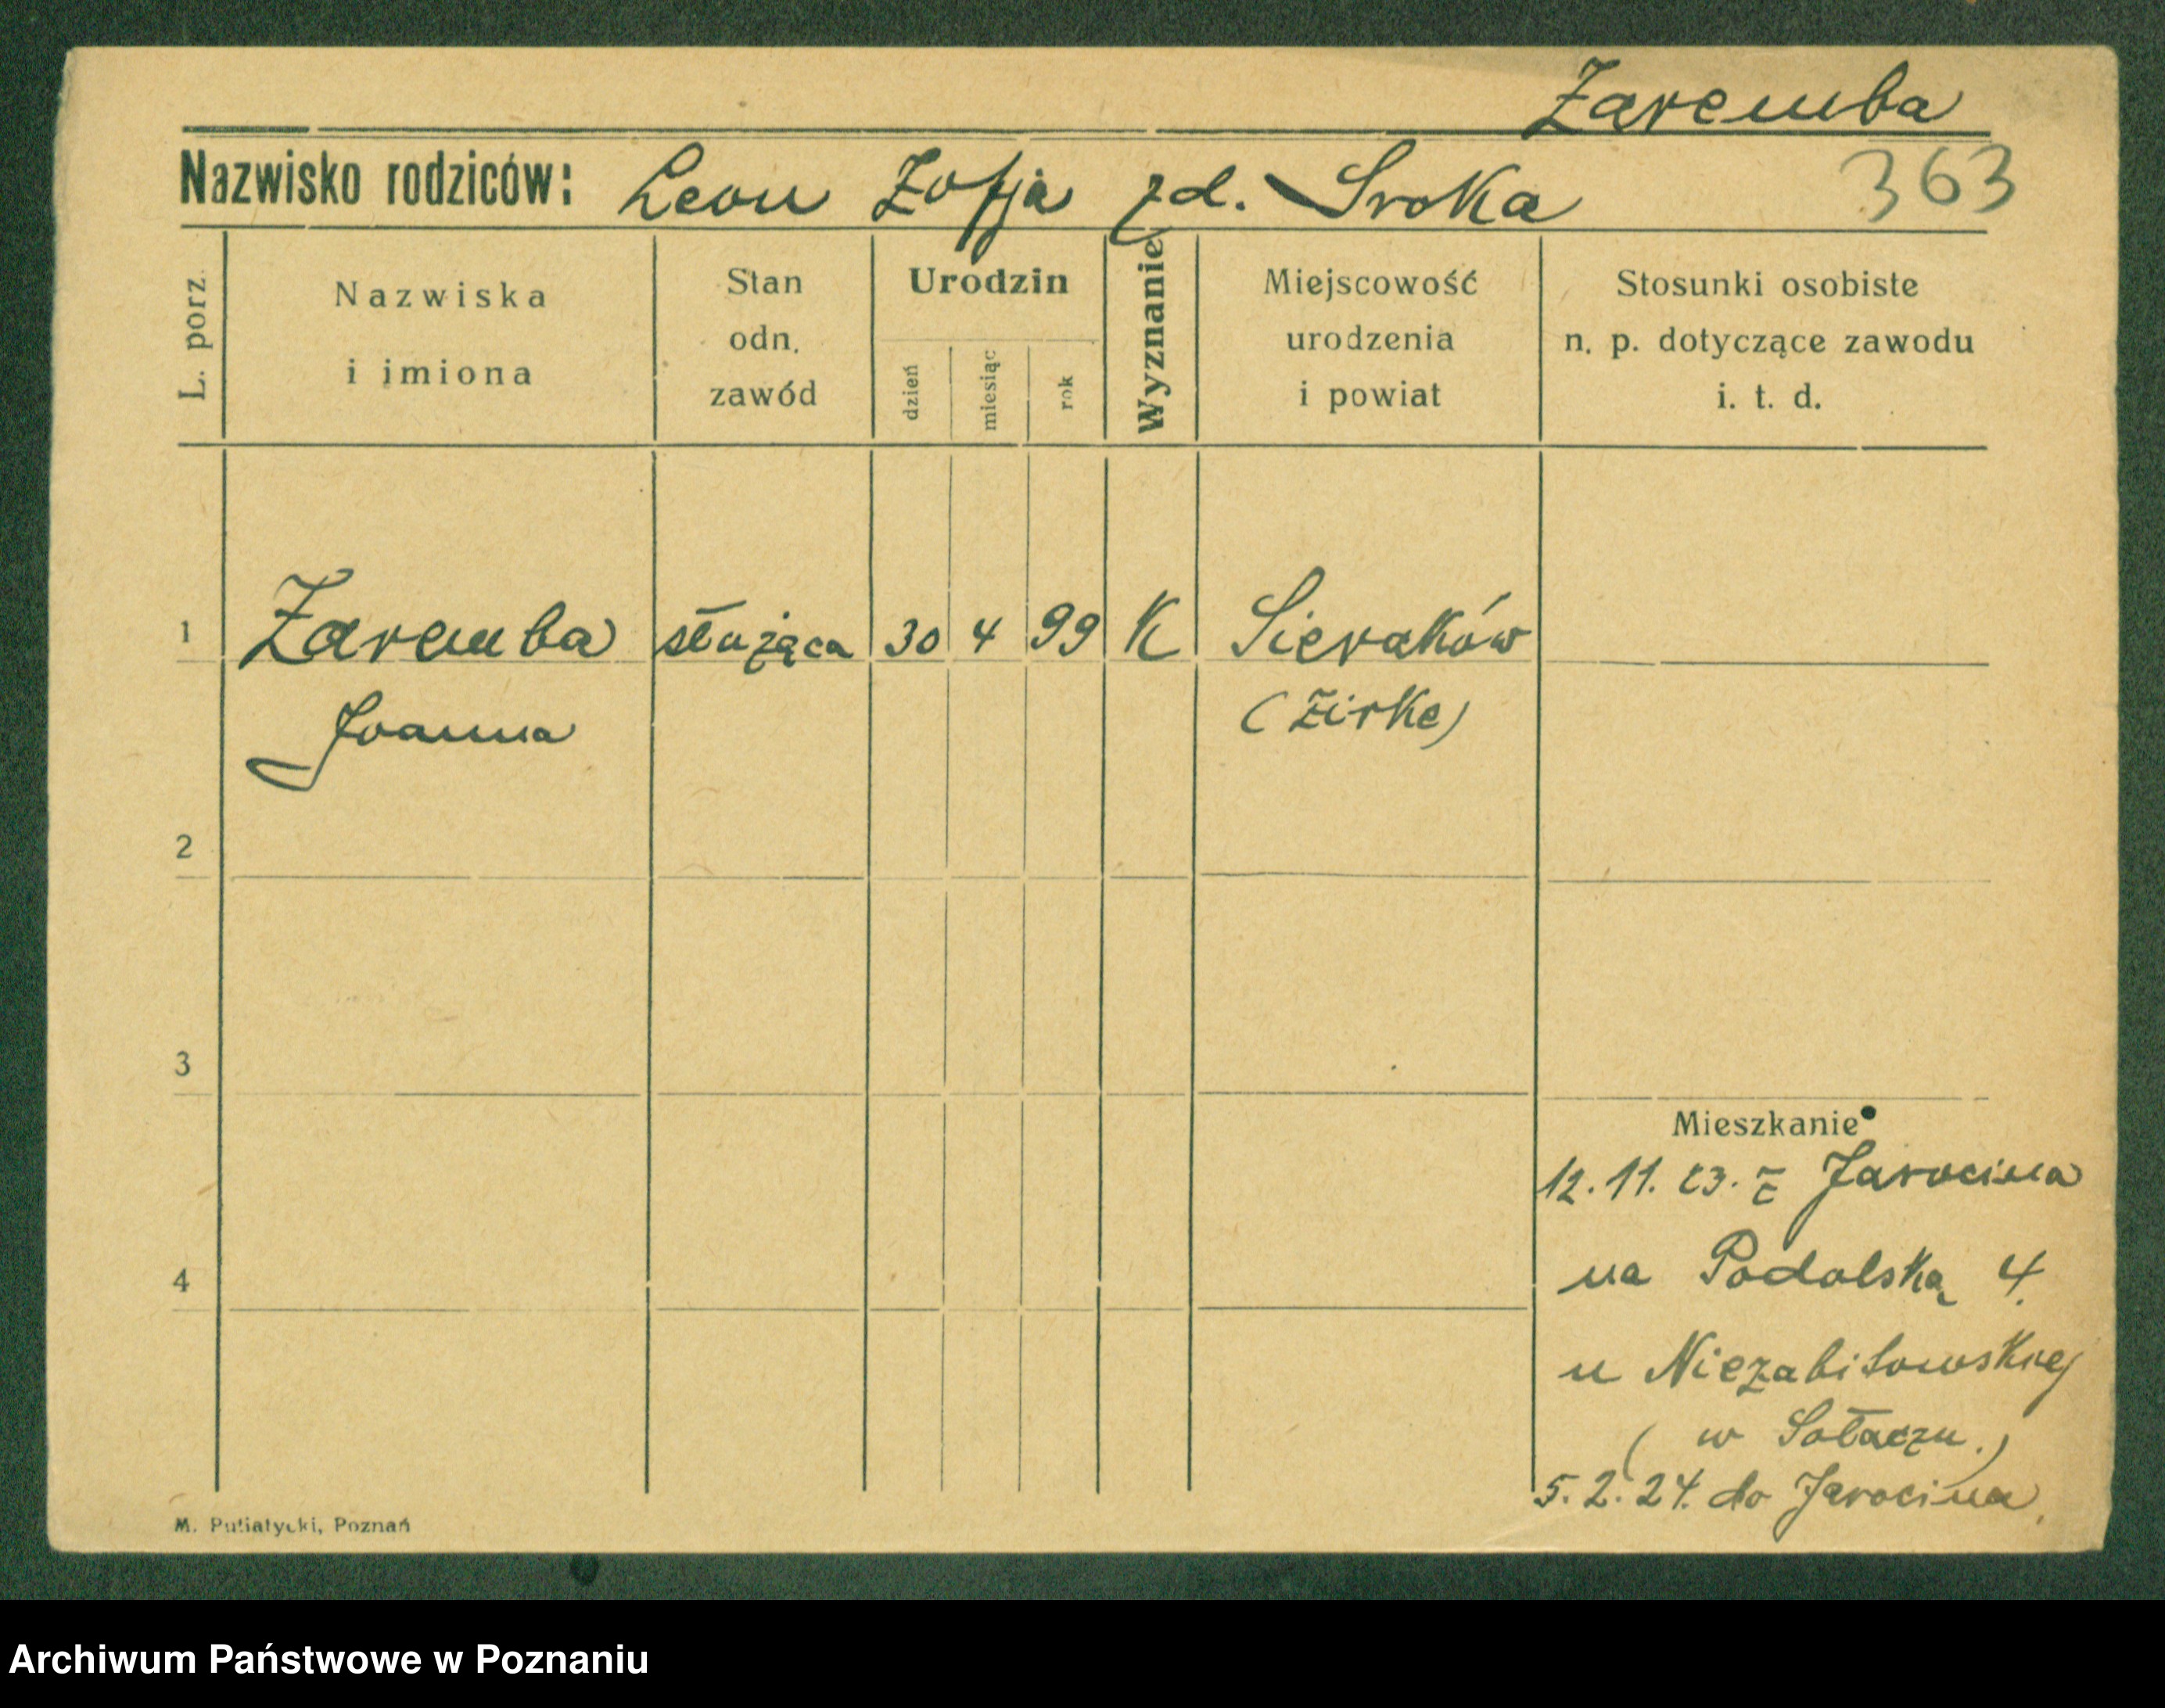 Zaremba
Nazwisko rodziców: Leon Zofja zd. Sroka 363
L. porz.
Nazwiska
i imiona
Stan
odn.
zawód
Urodzin
dzień
miesiąc
rok
Wyznanie
Miejscowość
urodzenia
i powiat
Stosunki osobiste
n. p. dotyczące zawodu
i. t. d.
1 Zaremba służąca 30 4 99 K Sieraków
Joanna (Zirke)
2
3
Mieszkanie
12.11.23. z Jarocina
4 na Podolską 4.
u Niezabitowskiej
(w Sołaczu.)
5.2.24. do Jarocina.
M. Putiatycki, Poznań
Archiwum Państwowe w Poznaniu